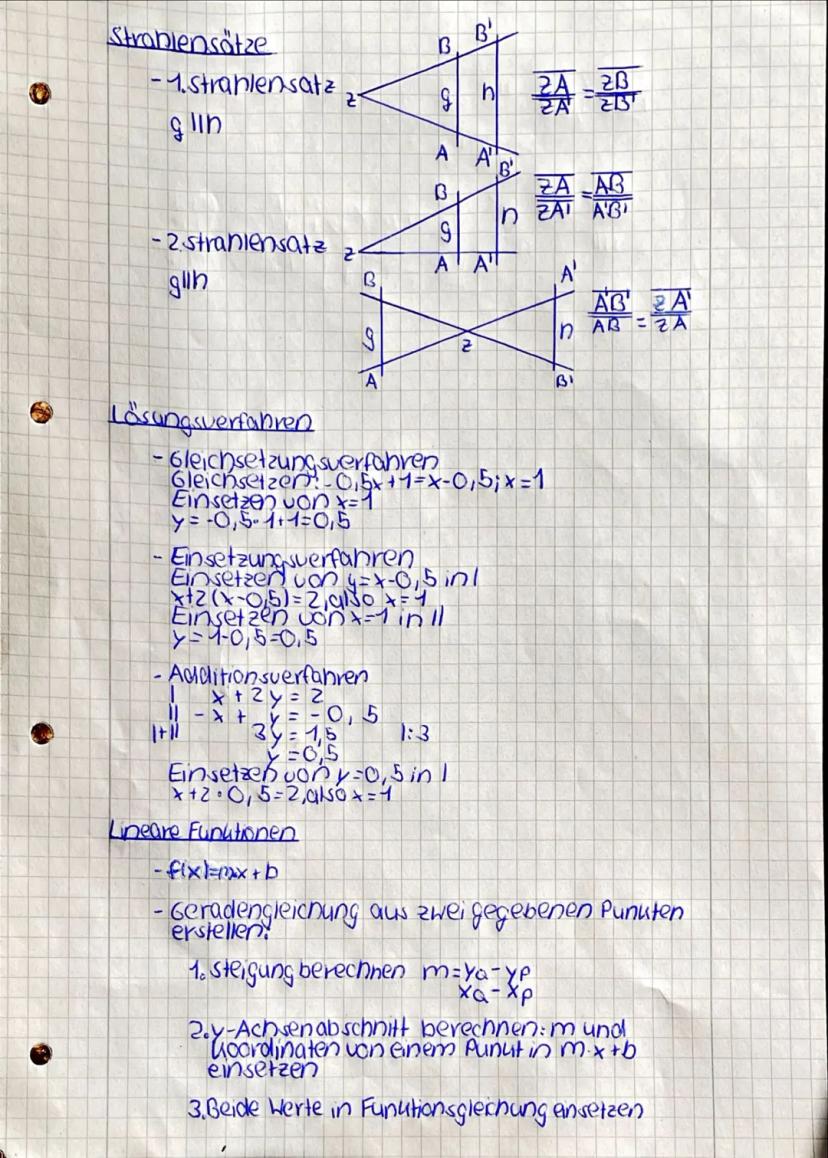 Strahlensätze
- 1. Strahlensatz
g || h
Z B B' g h A A'
ZA/ZA' = ZB/ZB'
- 2. Strahlensatz
g || h
Z B B' g h A A'
ZA/ZA' = AB/A'B'
B A' g h Z A B'
A'B'/AB = ZA'/ZA
Lösungsverfahren
- Gleichsetzungsverfahren
Gleichsetzen: -0,5x+1=x-0,5; x=1
Einsetzen von x=1
y = -0,5·1+1=0,5
- Einsetzungsverfahren
Einsetzen von y=x-0,5 in I
x+2(x-0,5)=2, also x=1
Einsetzen von x=1 in II
y=1-0,5=0,5
- Additionsverfahren
I x + 2y = 2
II -x + y = -0,5
I+II 3y = 1,5 |:3
y = 0,5
Einsetzen von y=0,5 in I
x+2·0,5=2, also x=1
Lineare Funktionen
- f(x)=mx+b
- Geradengleichung aus zwei gegebenen Punkten
erstellen:
1. Steigung berechnen m = yQ-yP
xQ-xP
2. y-Achsenabschnitt berechnen: m und
Koordinaten von einem Punkt in m·x+b
einsetzen
3. Beide Werte in Funktionsgleichung einsetzen